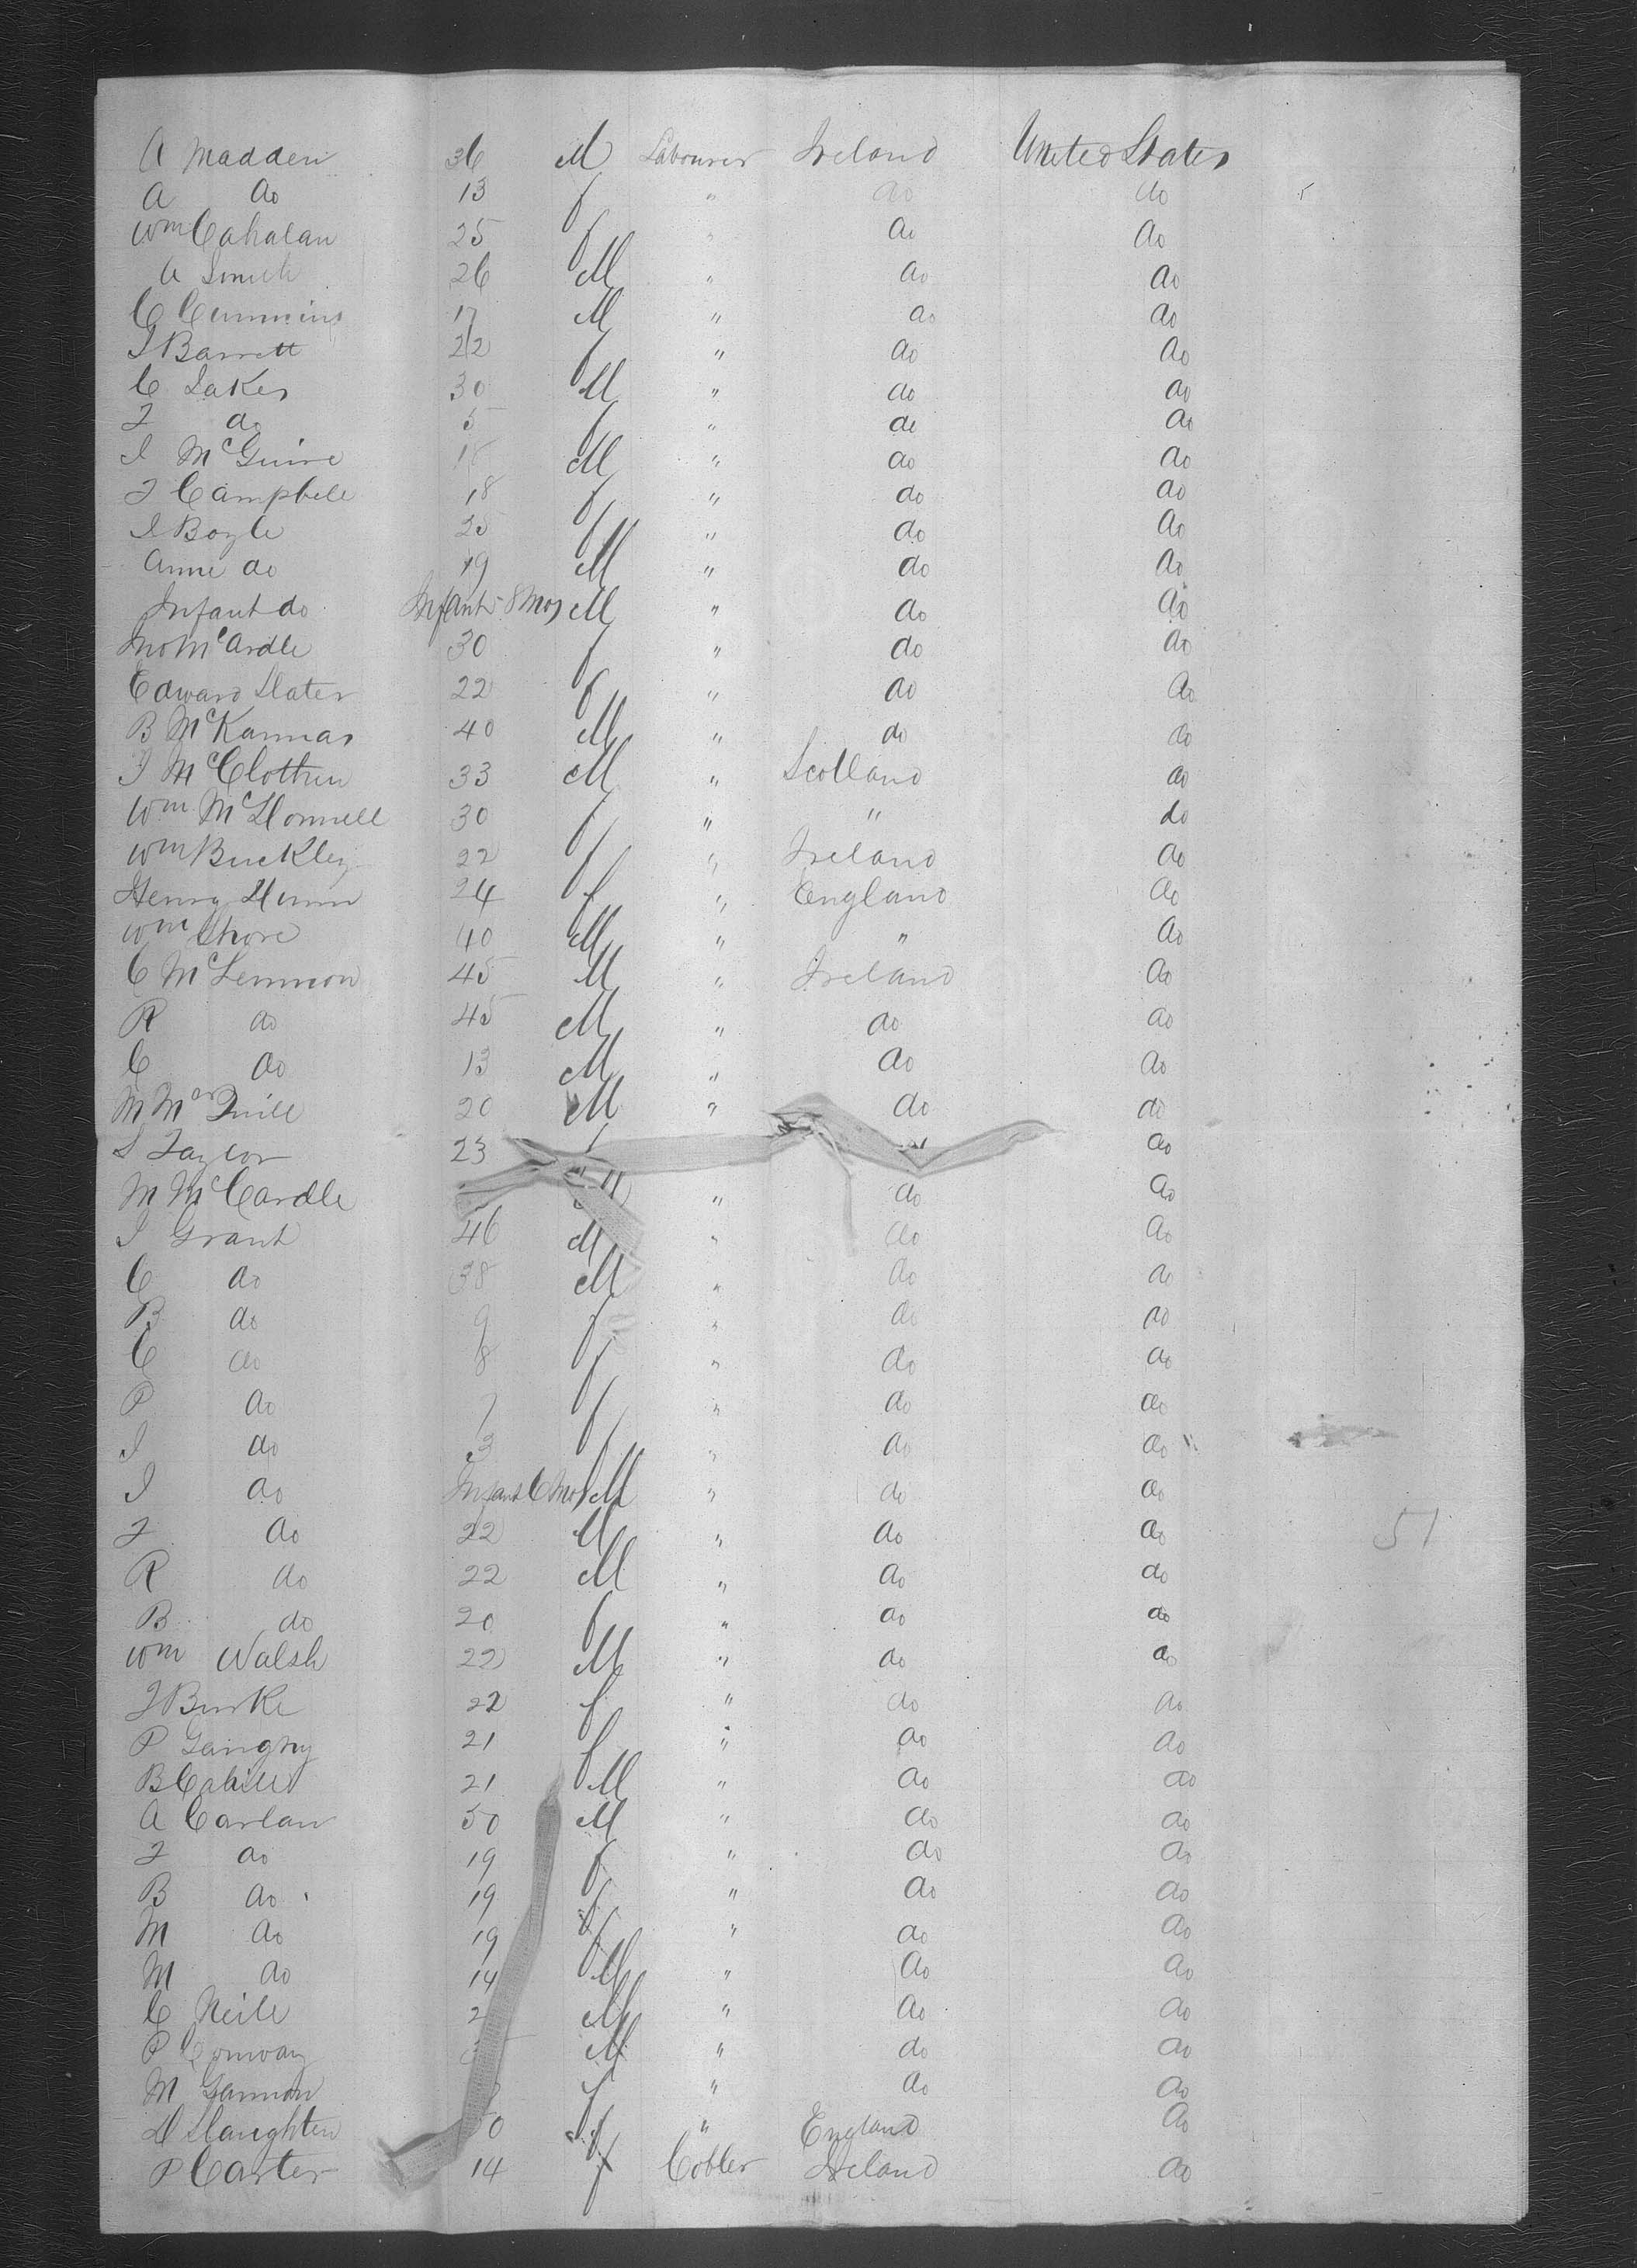 A Madden 36 M Labourer Ireland United States
A do 13 f " do do
Wm Cahalan 25 f " do do
A Smith 26 M " do do
C Cummins 17 M " do do
J Barrett 22 f " do do
C Lakes 30 M " do do
J do 5 f " do do
J McGuire M " do do
J Campbell 18 f " do do
J Boyle 25 f " do do
Anne do 19 M " do do
Infant do Infant 8 mos M " do do
Jno McArdle 30 f " do do
Edward Slater 22 f " do do
B McKannas 40 M " do do
J McClothen 33 M " Scotland do
Wm McDonnell 30 f " " do
Wm Buckley 22 f " Ireland do
Henry Dunn 24 f " England do
Wm Shore 40 M " " do
C McLennon 45 M " Ireland do
R do 45 M " do do
C do 13 M " do do
M M Quill 20 M " do do
S Taylor 23 f do
M McCardle M " do do
J Grant 46 M " do do
C do 38 M " do do
B do 9 f " do do
C do 8 f " do do
P do 7 f " do do
J do 3 f " do do
J do Infant 6 mos M " do do
J do 22 M " do do 51
R do 22 M " do do
B do 20 f " do do
Wm Walsh 22 M " do do
J Burke 22 f " do do
P 21 f " do do
B Cahill 21 M " do do
A Carlan 50 M " do do
J do 19 f " do do
B do 19 f " do do
M do 19 f " do do
M do 14 M " do do
C Neile 2 M " do do
P Conway M " do do
M Gannon f " do do
D Slaughten 0 f " England do
P Carter 14 f Cobler Ireland do